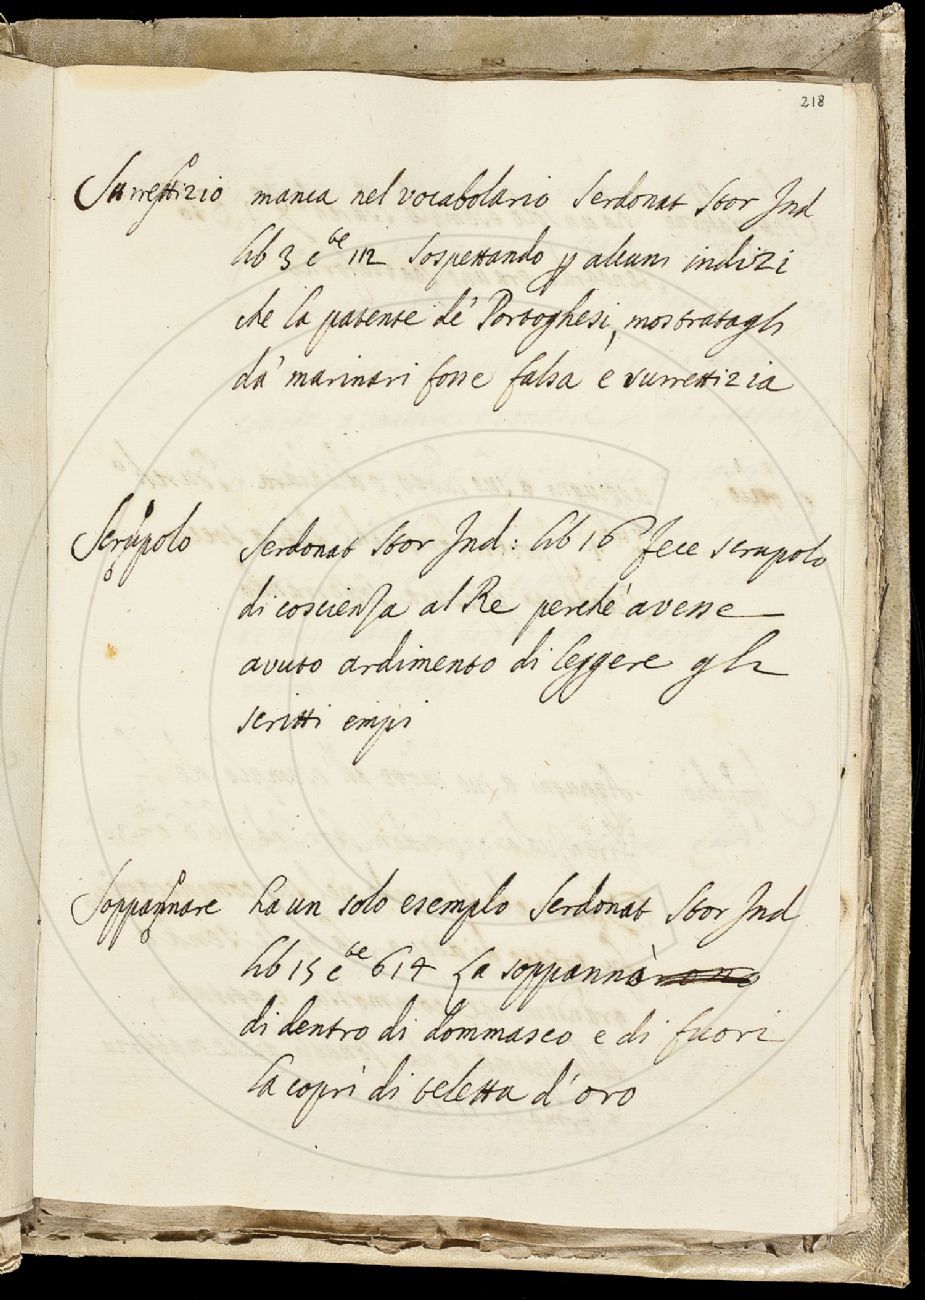 218
Surrettizio manca nel vocabolario Serdonat Stor Ind
lib 3 c^te 112 Sospettando p alcuni indizi
che la patente de' Portoghesi, mostratagli
da' marinari fosse falsa e surrettizia
Scrupolo Serdonat Stor Ind: lib 16 Fece scrupolo
di coscienza al Re perche' avesse
avuto ardimento di leggere gli
scritti empi
Soppannare ha un solo esempio Serdonat Stor Ind
lib 15 c^te 614 La soppannò
di dentro di dommasco e di fuori
la coprì di teletta d'oro